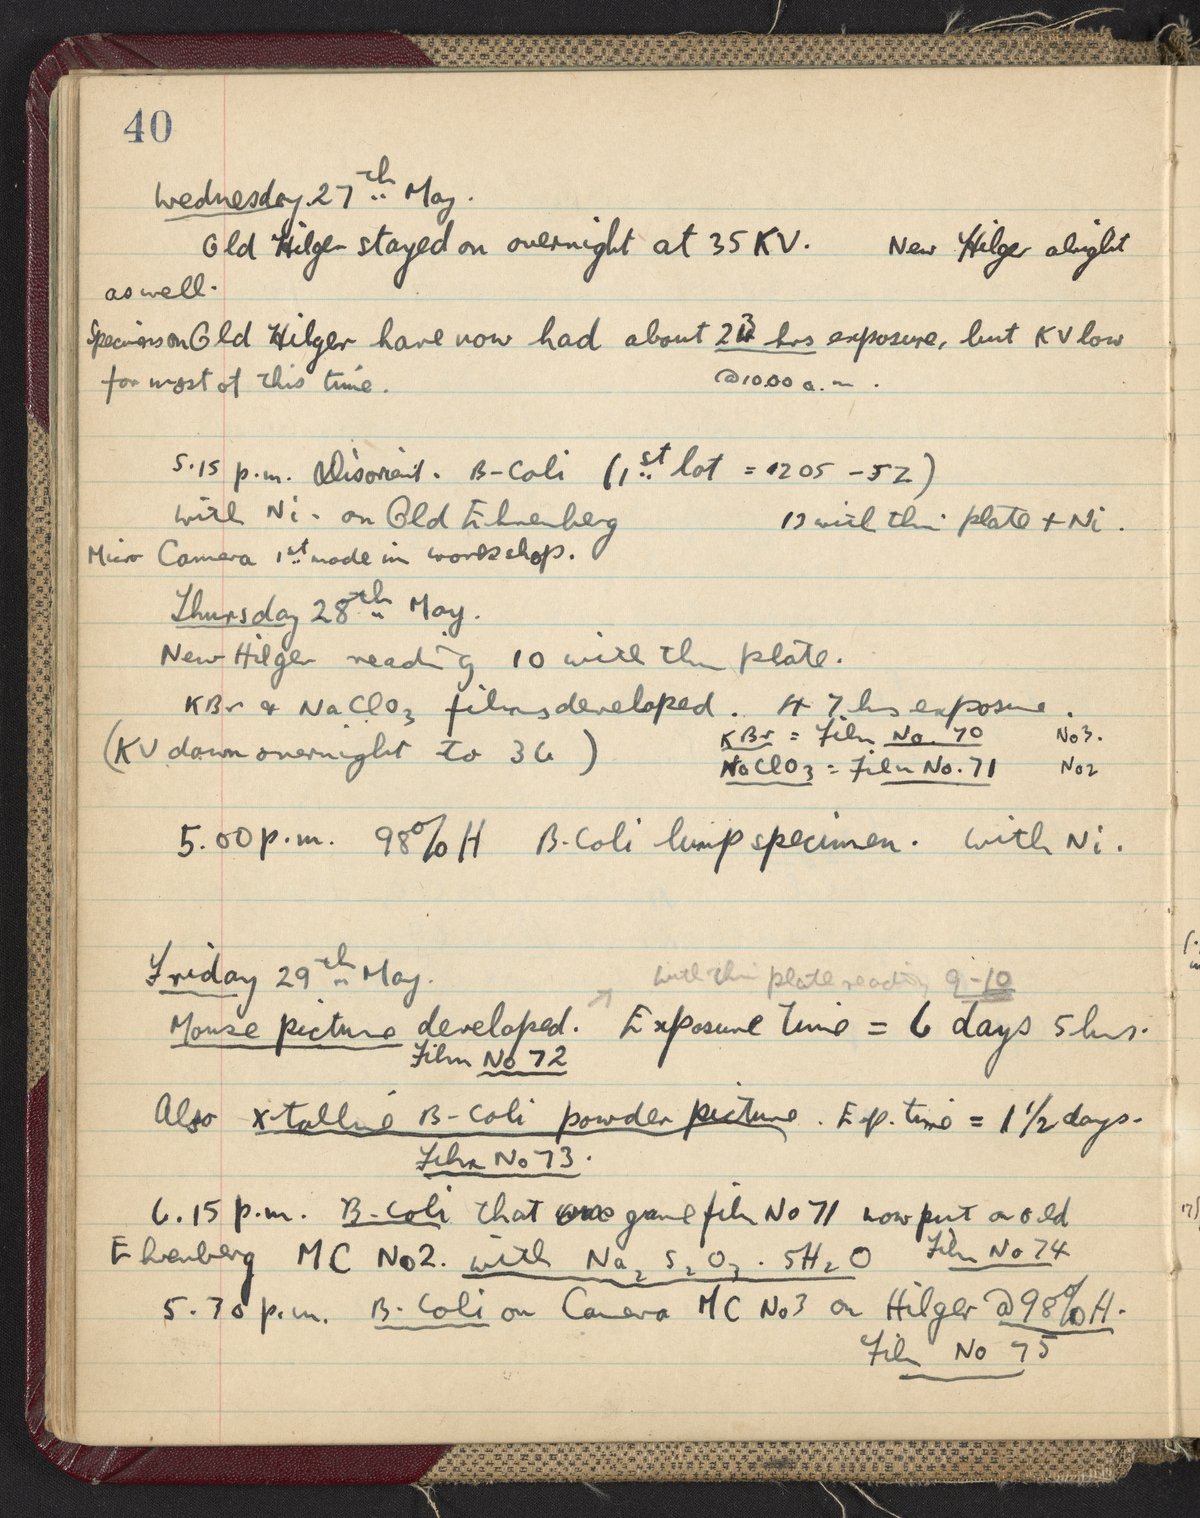 40
Wednesday 27th May.
Old Hilger stayed on overnight at 35 KV. New Hilger alright
as well.
Specimens on Old Hilger have now had about 23 hrs exposure, but KV low
for most of this time. @10.00 a.m.
5.15 p.m. Disorient. B-Coli (1st lot = 1205-52)
with Ni. on Old Ehrenberg 12 with thin plate + Ni.
Micro Camera 1st made in workshop.
Thursday 28th May.
New Hilger reading 10 with thin plate.
KBr & NaClO3 films developed. 47 hrs exposure.
(KV down overnight to 36) KBr = Film No. 70 No3.
NaClO3 = Film No. 71 No2
5.00 p.m. 98% H B-Coli lump specimen. with Ni.
Friday 29th May. with thin plate reading 9-10
Mouse picture developed. Exposure time = 6 days 5 hrs.
Film No 72
Also x-talline B-Coli powder picture. Exp. time = 1 1/2 days.
Film No 73.
6.15 p.m. B-Coli that gave film No 71 now put on old
Ehrenberg MC No2. with Na2 S2 O3 . 5H2O Film No 74
5.30 p.m. B-Coli on Camera MC No3 on Hilger @ 98% H.
Film No 75